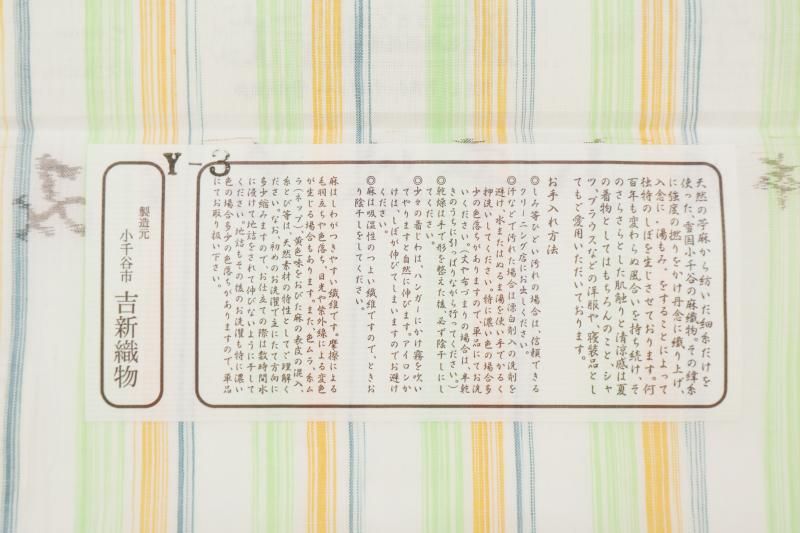 Y-3
天然の苧麻から紡いだ細糸だけを
使った、雪国小千谷の麻織物。その緯糸
に強度の撚りをかけ丹念に織り上げ、
入念に"湯もみ"をすることによって
独特のしぼを生じさせております。何
百年も変わらぬ風合いを持ち続け、そ
のさらさらとした肌触りと清涼感は夏
の着物としてはもちろんのこと、シャ
ツ、ブラウスなどの洋服や、寝装品とし
てもご愛用いただいております。
お手入れ方法
◎しみ等ひどい汚れの場合は、信頼できる
クリーニング店にお出しください。
◎汗などで汚れた場合は漂白剤入の洗剤を
避け、水またはぬるま湯を使い手でかるく
押洗いしてください。特に濃い色の場合多
少の色落ちがありますので、単品にてお洗
いください。(丈や布づまりの場合は、半乾
きのうちに引っぱりながら行ってください。)
◎乾燥は手で形を整えた後、必ず陰干しにし
てください。
◎少々の着じわは、ハンガーにかけ霧を吹い
てやりますと自然に伸びます。アイロンか
けは、しぼが伸びてしまいますのでお避け
ください。
◎麻は吸湿性のつよい繊維ですので、ときお
り陰干しをしてください。
麻はしわがつきやすい繊維です。摩擦による
毛羽立ちや色落ち、日光や紫外線による変色
が生じる場合もあります。また、色ムラ、糸ム
ラ(ネップ)、黄色味をおびた麻の表皮の混入、
糸とび等は、天然素材の特性としてご理解く
ださい。なお、初めのお洗濯で主にたて方向に
多少縮みますので、お仕立ての際は数時間水
に浸けて地詰をされて伸びないように干して
ください。地詰もその後のお洗濯も特に濃い
色の場合多少の色落ちがありますので、単品
にてお取り扱い下さい。
製造元
小千谷市 吉新織物